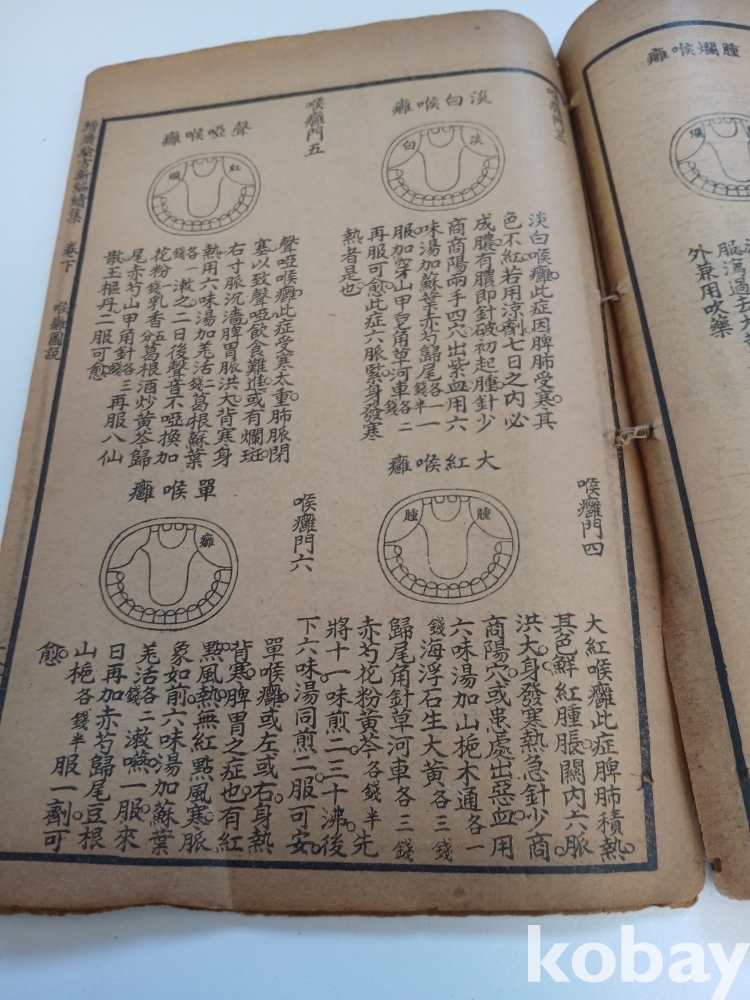 喉癰門三
淡白喉癰
淡
白
淡白喉癰此症因脾肺受寒其
色不紅若用涼劑七日之內必
成膿有膿即針破初起腫針少
商商陽兩手四穴出紫血用六
味湯加蘇葉赤芍歸尾各一錢半一
服加穿山甲皂角草河車各二錢
再服可愈此症六脈緊身發寒
熱者是也
喉癰門四
大紅喉癰
腫
腫
大紅喉癰此症脾肺積熱
其色鮮紅腫脹關內六脈
洪大身發寒熱急針少商
商陽穴或患處出惡血用
六味湯加山梔木通各一
錢海浮石生大黃各三錢
歸尾角針草河車各三錢
赤芍花粉黃芩各錢半先
將十一味煎二三十沸後
下六味湯同煎二服可安
喉癰門五
聲啞喉癰
紅
爛
聲啞喉癰此症受寒太重肺脈閉
塞以致聲啞飲食難進或有爛斑
右寸脈沉濇脾胃脈洪大背寒身
熱用六味湯加羌活二錢葛根蘇葉
各一錢漱之二日後聲音不啞換加
花粉錢乳香五分葛根酒炒黃芩歸
尾赤芍山甲角針各三錢再服八仙
散玉樞丹二服可愈
喉癰門六
單喉癰
癰
單喉癰或左或右身熱
背寒脾胃之症也有紅
點風熱無紅點風寒脈
象如前六味湯加蘇葉
羌活各二漱嚥一服來
日再加赤芍歸尾豆根
山梔各錢半服一劑可
愈
增廣驗方新編續集 卷下 喉癰圖說
腫爛喉癰
爛
外兼用吹藥
kobay